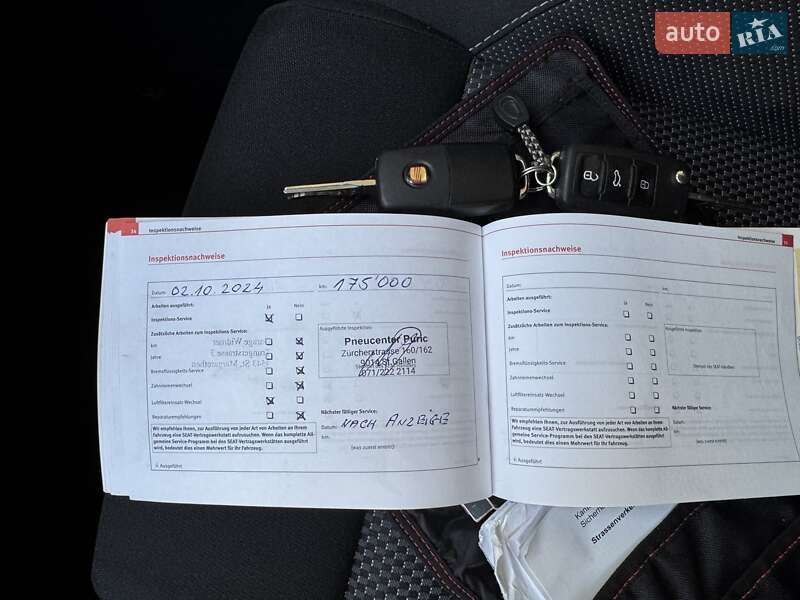 auto RIA
.com
34 Inspektionsnachweise
Inspektionsnachweise
Datum: 02.10.2024 km: 175'000
Arbeiten ausgeführt: Ja Nein
Inspektions-Service
Zusätzliche Arbeiten zum Inspektions-Service:
km
Jahre
Bremsflüssigkeits-Service
Zahnriemenwechsel
Luftfiltereinsatz-Wechsel
Reparaturempfehlungen
Wir empfehlen, zur Ausführung von jeder Art von Arbeiten an Ihrem
Fahrzeug eine SEAT-Vertragswerkstatt aufzusuchen. Wenn das komplette All-
gemeine Service-Programm bei den SEAT-Vertragswerkstätten ausgeführt
wird, bedeutet dies einen Mehrwert für Ihr Fahrzeug.
Ausgeführt
Ausgeführte Inspektion:
Pneucenter Puric
Zürcherstrasse 160/162
9014 St.Gallen
071/222 2114
Nächster fälliger Service:
Datum: NACH ANZEIGE
km:
(was zuerst eintritt)
Inspektionsnachweise
Inspektionsnachweise
Datum: km:
Arbeiten ausgeführt: Ja Nein
Inspektions-Service
Zusätzliche Arbeiten zum Inspektions-Service:
km
Jahre
Bremsflüssigkeits-Service
Zahnriemenwechsel
Luftfiltereinsatz-Wechsel
Reparaturempfehlungen
Wir empfehlen, zur Ausführung von jeder Art von Arbeiten an Ihrem
Fahrzeug eine SEAT-Vertragswerkstatt aufzusuchen. Wenn das komplette All-
gemeine Service-Programm bei den SEAT-Vertragswerkstätten ausgeführt
wird, bedeutet dies einen Mehrwert für Ihr Fahrzeug.
Ausgeführt
Ausgeführte Inspektion:
Stempel des SEAT-Händlers
Nächster fälliger Service:
Datum:
km:
(was zuerst eintritt)
Strassenverke